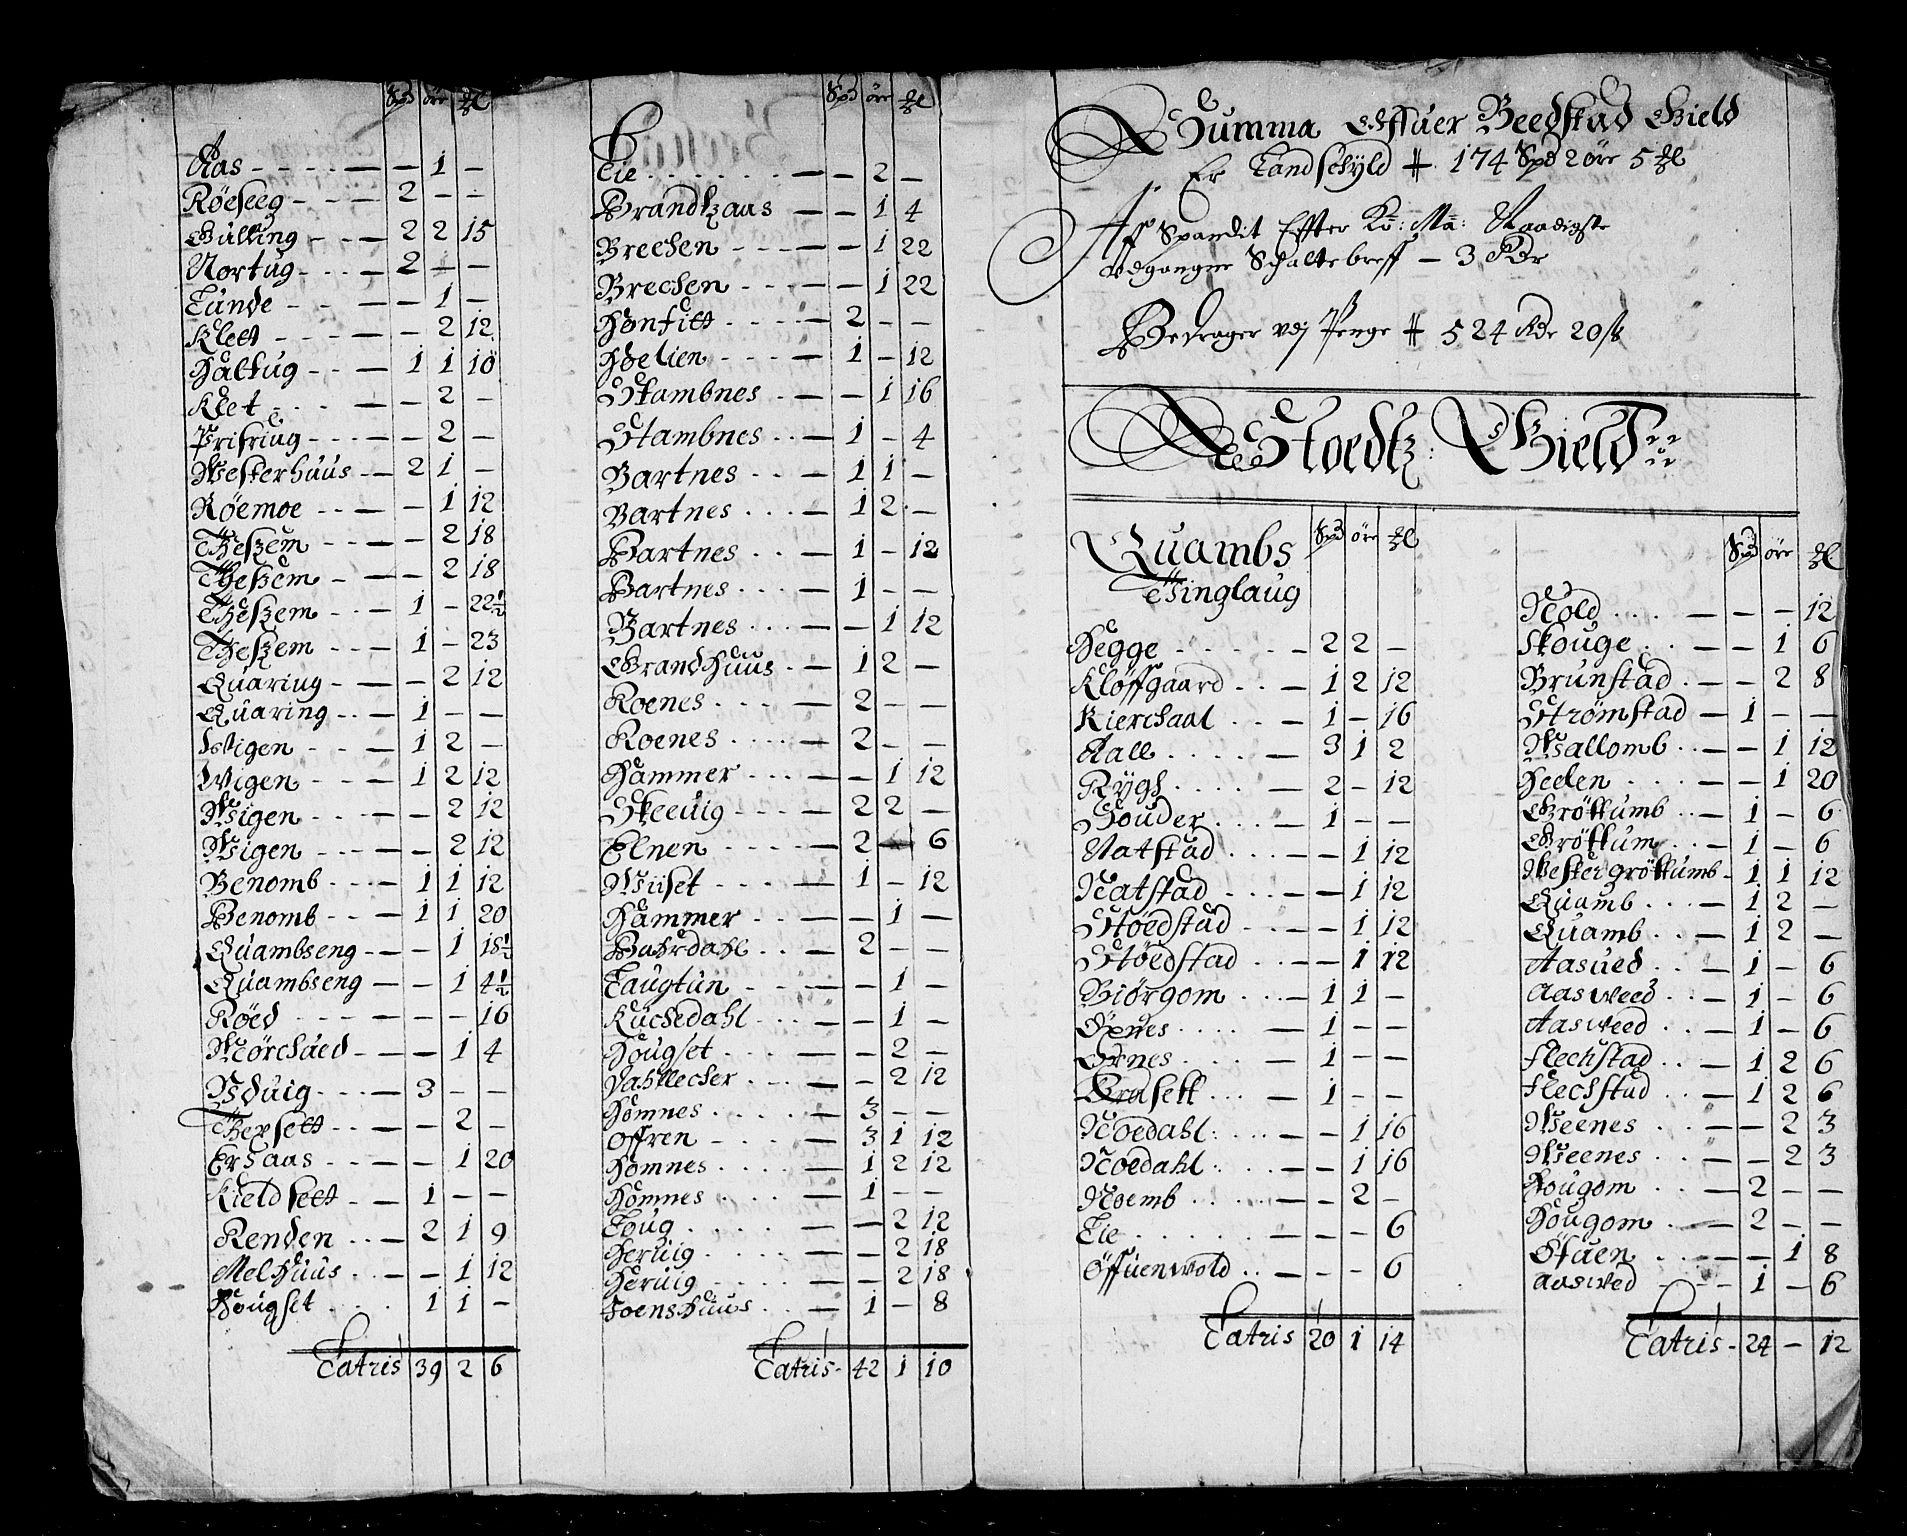 Spd öre ℔
Aas - - - - — — 1 —
Röeseeg - - - — 2 - -
Gulling - - - — 2 2 15
Nortug - - - — 2 — —
Tunde - - — — 1 —
Klett - - - - — — 2 12
Haltug - - - — 1 1 10
Klet - - - — — 2 —
Prifring - - - — — 2 —
Westerhuus - - — 2 1 —
Röemoe - - - — — 1 12
Theszem - - — — 2 18
Theszem - - — — 2 18
Theszem - - - — 1 - 22½
Theszem - - - — 1 - 23
Quaring - - — — 2 12
Quaring - - - — 1 - —
Wigen - - - — 1 2 —
Wigen - - - — 1 2 12
Wigen - - - — — 2 12
Wigen - - - - — — 2 12
Benomb - - - — 1 1 12
Benomb - - - — 1 1 20
Quambseng - - — — 1 18½
Quambseng - — — 1 4½
Röed - - - - — — — 16
Mörchued - - - — — 1 4
Wduig - - - — 3 - —
Thersett - - — — 2 —
Ersaas - - - — — 1 20
Kieldsett - - — 1 — —
Renden - - - — 2 1 9
Melhuus - - — — 1 12
Hougset - - - - 1 1 —
Latris 39 2 6
Spd öre ℔
Lie . . . . . . — — 2 —
Brandtzaas — — 1 4
Brechen - - - - — — 1 22
Brechen - - - — — 1 22
Honfitt - - - - — 2 — —
Hoelien - - - - — 1 — 12
Stambnes - - - — — 1 16
Stambnes - - — 1 — 4
Bartnes . . . — 1 1 —
Bartnes . . . — 1 2 —
Bartnes . . . — 1 — 12
Bartnes . . . — 1 — —
Bartnes . . . — — 1 12
Grandhuus . . — 1 2 —
Roenes . . . . — 2 — —
Roenes . . . . — 2 — —
Hammer . . . — — 1 12
Skeeuig - - - — 2 2 —
Elnen - - - - — 2 — 6
Wiiset - - - - — 1 — 12
Hammer - - - — — 1 —
Bahrdahl . . . — 2 — —
Taugtun . . . — — 1 —
Kuchedahl . . . — — 1 —
Hougset . . . . — — 2 —
Dahllecher . . . — — 2 12
Homnes . . . . — 3 — —
Offren - . . . — 3 1 12
Homnes . . . . — 1 2 12
Homnes . . . . — 1 — —
Toug . . . . — — 2 12
Heruig . . . . — — 2 18
Heruig . . . . — — 2 18
Joenshuus . . . — 1 — 8
Latris - 42 1 10
Summa Offuer Beedstad Gield
Er Landschyld ⸗ 174 Spd 2 öre 5 ℔
Aff Spandit Effter Ko: Ma: Naadigste
Udgangne Schatte breff — 3 Rdr
Bedrager udj Penge ⸗ 524 Rdr 20 ß
Stoedtz: Gield
Quambs
Tinglaug
Spd öre ℔
Hegge - - - - - — 2 2 —
Klöffgaard . . . — 1 2 12
Kierchaal . . . — 1 — 16
Aall . . . . . — 3 1 2
Rygh . . . . . — 2 — 12
Souder . . . . — 1 — —
Natstad . . . — — 1 12
Natstad . . . — — 1 12
Stöedstad . . . — — 1 12
Stöedstad . . . — — 1 12
Biörgom . . . — 1 1 —
Öxnes . . . . — 1 — —
Ornes . . . . — 1 — —
Brasett . . . — 1 — —
Noedahl . . . — — 1 16
Noedahl . . . — — 1 16
Noemb . . . . — — 2 —
Lie . . . . . . — — — 6
Öffuenwold . . — — — 6
Latris 20 1 14
Spd öre ℔
Nold . . . . — — — 12
Skouge . . . — — 1 6
Brunstad . . — — 2 8
Strömstad — 1 — —
Wallomb . . — — 1 12
Heelen . . . . — — 1 20
Gröttumb . . — 1 — 6
Gröttum . . — 1 — 6
Wester gröttumb - 1 1 12
Quamb . . . — 1 2 —
Quamb . . . — 1 2 —
Aasued . . . — 1 — 6
Aasweed . . — 1 — 6
Aasweed . . — 1 — 6
Flechstad . . — 1 2 6
Flechstad . . — 1 2 6
Weenes . . . — — 2 3
Weenes . . . — — 2 3
Hougom . . — 2 — —
Hougom . . — 2 — —
Östuen . . . — — 1 8
Aaswed - - - 1 — 6
Latris - 24 — 12